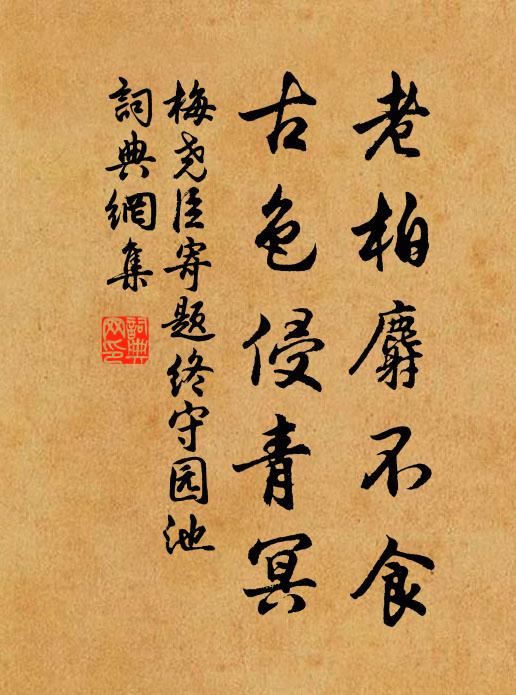 老柏麝不食
古色侵青冥
梅尧臣寄题终守园池
詞典網集
詞典
网印